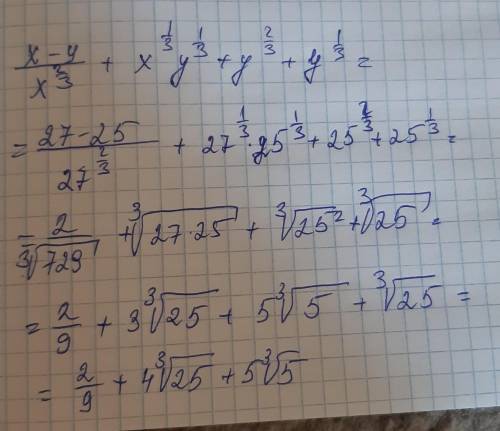 (x - y) / x^(2/3) + x^(1/3) y^(1/3) + y^(2/3) + y^(1/3) =
= (27 - 25) / 27^(2/3) + 27^(1/3) · 25^(1/3) + 25^(2/3) + 25^(1/3) =
= 2 / ∛729 + ∛(27·25) + ∛25² + ∛25 =
= 2/9 + 3∛25 + 5∛5 + ∛25 =
= 2/9 + 4∛25 + 5∛5